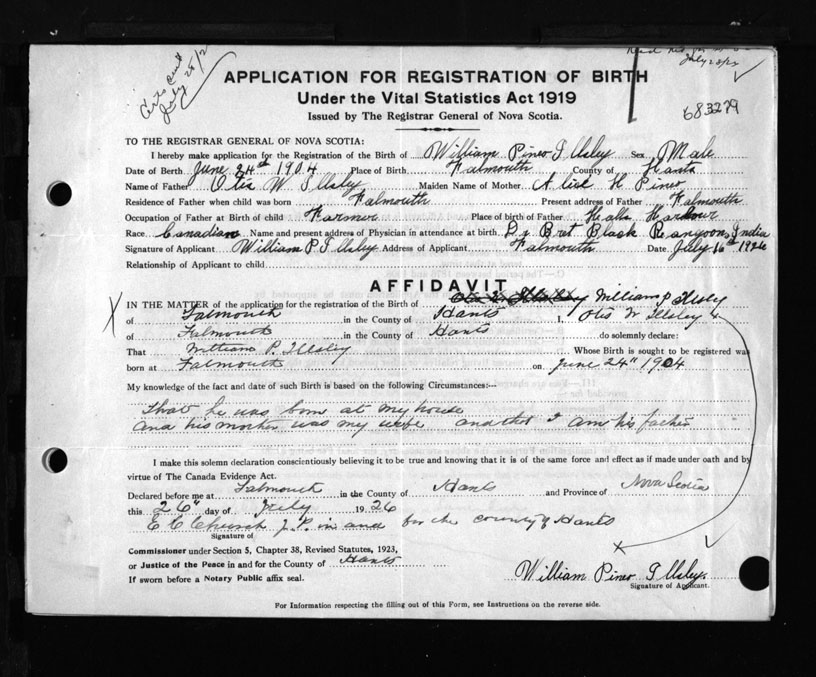 Certs sent
July 28/26
July 28/26
683279
APPLICATION FOR REGISTRATION OF BIRTH
Under the Vital Statistics Act 1919
Issued by The Registrar General of Nova Scotia.
TO THE REGISTRAR GENERAL OF NOVA SCOTIA:
I hereby make application for the Registration of the Birth of William Pineo Illsley Sex Male
Date of Berth June 24th 1904 Place of Birth Falmouth County of Hants
Name of Father Otis W Illsley Maiden Name of Mother Alice H Pineo
Residence of Father when child was born Falmouth Present address of Father Falmouth
Occupation of Father at Birth of child Farmer Place of birth of Father Halls Harbour
Race Canadian Name and present address of Physician in attendance at birth Dr Bret Black Rangoon, India
Signature of Applicant William P Illsley Address of Applicant Falmouth Date July 16th 1926
Relationship of Applicant to child
AFFIDAVIT
IN THE MATTER of the application for the registration of the Birth of Otis W Illsley William P Illsley
of Falmouth in the County of Hants I, Otis W Illsley
of Falmouth in the County of Hants do solemnly declare:
That William P. Illsley Whose Birth is sought to be registered was
born at Falmouth on June 24" 1904
My knowledge of the fact and date of such Birth is based on the following Circumstances:—
That he was born at my house
and his mother was my wife and that I am his father
I make this solemn declaration conscientiously believing it to be true and knowing that it is of the same force and effect as if made under oath and by
virtue of The Canada Evidence Act.
Declared before me at Falmouth in the County of Hants and Province of Nova Scotia
this 26" day of July 1926
E C Church J.P. in and for the County of Hants
Signature of
Commissioner under Section 5, Chapter 38, Revised Statutes, 1923,
or Justice of the Peace in and for the County of Hants
If sworn before a Notary Public affix seal.
William Pineo Illsley
Signature of Applicant.
For Information respecting the filling out of this Form, see Instructions on the reverse side.